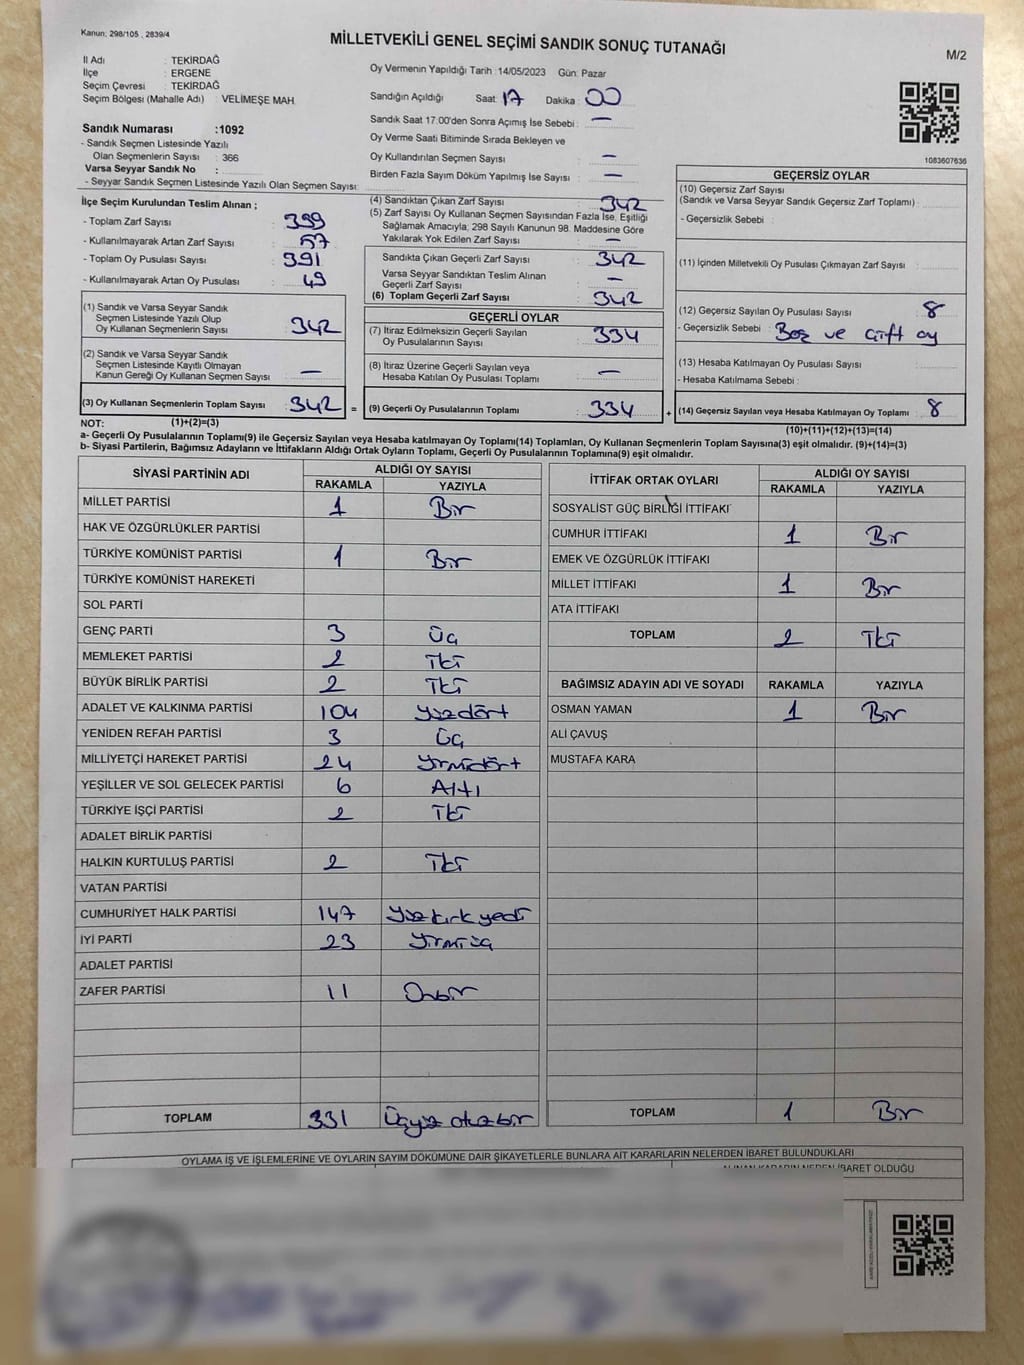 Kanun: 298/105 , 2839/4
MİLLETVEKİLİ GENEL SEÇİMİ SANDIK SONUÇ TUTANAĞI
M/2
İl Adı : TEKİRDAĞ
İlçe : ERGENE
Seçim Çevresi : TEKİRDAĞ
Seçim Bölgesi (Mahalle Adı) : VELİMEŞE MAH.
Sandık Numarası :1092
- Sandık Seçmen Listesinde Yazılı
Olan Seçmenlerin Sayısı : 366
Varsa Seyyar Sandık No :
- Seyyar Sandık Seçmen Listesinde Yazılı Olan Seçmen Sayısı:
Oy Vermenin Yapıldığı Tarih :14/05/2023 Gün: Pazar
Sandığın Açıldığı Saat : 17 Dakika : 00
Sandık Saat 17.00'den Sonra Açılmış İse Sebebi : —
Oy Verme Saati Bitiminde Sırada Bekleyen ve
Oy Kullandırılan Seçmen Sayısı : —
Birden Fazla Sayım Döküm Yapılmış İse Sayısı : —
1083607636
İlçe Seçim Kurulundan Teslim Alınan ;
- Toplam Zarf Sayısı : 399
- Kullanılmayarak Artan Zarf Sayısı : 57
- Toplam Oy Pusulası Sayısı : 391
- Kullanılmayarak Artan Oy Pusulası : 49
(1) Sandık ve Varsa Seyyar Sandık
Seçmen Listesinde Yazılı Olup
Oy Kullanan Seçmenlerin Sayısı : 342
(2) Sandık ve Varsa Seyyar Sandık
Seçmen Listesinde Kayıtlı Olmayan
Kanun Gereği Oy Kullanan Seçmen Sayısı : —
(3) Oy Kullanan Seçmenlerin Toplam Sayısı : 342 =
(4) Sandıktan Çıkan Zarf Sayısı : 342
(5) Zarf Sayısı Oy Kullanan Seçmen Sayısından Fazla İse, Eşitliği
Sağlamak Amacıyla; 298 Sayılı Kanunun 98. Maddesine Göre
Yakılarak Yok Edilen Zarf Sayısı : —
Sandıkta Çıkan Geçerli Zarf Sayısı : 342
Varsa Seyyar Sandıktan Teslim Alınan
Geçerli Zarf Sayısı : —
(6) Toplam Geçerli Zarf Sayısı : 342
GEÇERLİ OYLAR
(7) İtiraz Edilmeksizin Geçerli Sayılan
Oy Pusulalarının Sayısı : 334
(8) İtiraz Üzerine Geçerli Sayılan veya
Hesaba Katılan Oy Pusulası Toplamı : —
(9) Geçerli Oy Pusulalarının Toplamı : 334 +
GEÇERSİZ OYLAR
(10) Geçersiz Zarf Sayısı
(Sandık ve Varsa Seyyar Sandık Geçersiz Zarf Toplamı) :
- Geçersizlik Sebebi :
(11) İçinden Milletvekili Oy Pusulası Çıkmayan Zarf Sayısı :
(12) Geçersiz Sayılan Oy Pusulası Sayısı : 8
- Geçersizlik Sebebi : Boş ve çift oy
(13) Hesaba Katılmayan Oy Pusulası Sayısı :
- Hesaba Katılmama Sebebi :
(14) Geçersiz Sayılan veya Hesaba Katılmayan Oy Toplamı : 8
NOT: (1)+(2)=(3) (10)+(11)+(12)+(13)=(14)
a- Geçerli Oy Pusulalarının Toplamı(9) ile Geçersiz Sayılan veya Hesaba katılmayan Oy Toplamı(14) Toplamları, Oy Kullanan Seçmenlerin Toplam Sayısına(3) eşit olmalıdır. (9)+(14)=(3)
b- Siyasi Partilerin, Bağımsız Adayların ve İttifakların Aldığı Ortak Oyların Toplamı, Geçerli Oy Pusulalarının Toplamına(9) eşit olmalıdır.
SİYASİ PARTİNİN ADI ALDIĞI OY SAYISI
RAKAMLA YAZIYLA
MİLLET PARTİSİ 1 Bir
HAK VE ÖZGÜRLÜKLER PARTİSİ
TÜRKİYE KOMÜNİST PARTİSİ 1 Bir
TÜRKİYE KOMÜNİST HAREKETİ
SOL PARTİ
GENÇ PARTİ 3 Üç
MEMLEKET PARTİSİ 2 İki
BÜYÜK BİRLİK PARTİSİ 2 İki
ADALET VE KALKINMA PARTİSİ 104 Yüzdört
YENİDEN REFAH PARTİSİ 3 Üç
MİLLİYETÇİ HAREKET PARTİSİ 24 Yirmidört
YEŞİLLER VE SOL GELECEK PARTİSİ 6 Altı
TÜRKİYE İŞÇİ PARTİSİ 2 İki
ADALET BİRLİK PARTİSİ
HALKIN KURTULUŞ PARTİSİ 2 İki
VATAN PARTİSİ
CUMHURİYET HALK PARTİSİ 147 Yüzkırkyedi
İYİ PARTİ 23 Yirmiüç
ADALET PARTİSİ
ZAFER PARTİSİ 11 Onbir
TOPLAM 331 Üçyüz otuzbir
İTTİFAK ORTAK OYLARI ALDIĞI OY SAYISI
RAKAMLA YAZIYLA
SOSYALİST GÜÇ BİRLİĞİ İTTİFAKI
CUMHUR İTTİFAKI 1 Bir
EMEK VE ÖZGÜRLÜK İTTİFAKI
MİLLET İTTİFAKI 1 Bir
ATA İTTİFAKI
TOPLAM 2 İki
BAĞIMSIZ ADAYIN ADI VE SOYADI RAKAMLA YAZIYLA
OSMAN YAMAN 1 Bir
ALİ ÇAVUŞ
MUSTAFA KARA
TOPLAM 1 Bir
OYLAMA İŞ VE İŞLEMLERİNE VE OYLARIN SAYIM DÖKÜMÜNE DAİR ŞİKAYETLERLE BUNLARA AİT KARARLARIN NELERDEN İBARET BULUNDUKLARI
ALINAN KARARIN NEDEN İBARET OLDUĞU